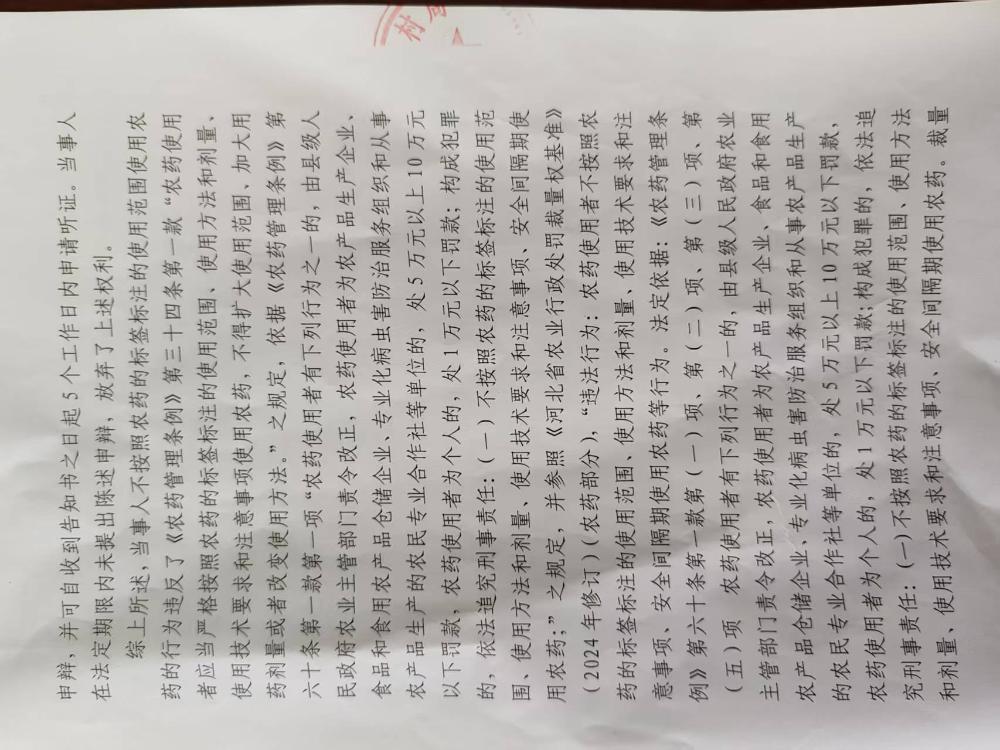 村
申辩，并可自收到告知书之日起5个工作日内申请听证。当事人
在法定期限内未提出陈述申辩，放弃了上述权利。
综上所述，当事人不按照农药的标签标注的使用范围使用农
药的行为违反了《农药管理条例》第三十四条第一款“农药使用
者应当严格按照农药的标签标注的使用范围、使用方法和剂量、
使用技术要求和注意事项使用农药，不得扩大使用范围、加大用
药剂量或者改变使用方法。”之规定，依据《农药管理条例》第
六十条第一款第一项“农药使用者有下列行为之一的，由县级人
民政府农业主管部门责令改正，农药使用者为农产品生产企业、
食品和食用农产品仓储企业、专业化病虫害防治服务组织和从事
农产品生产的农民专业合作社等单位的，处5万元以上10万元
以下罚款，农药使用者为个人的，处1万元以下罚款；构成犯罪
的，依法追究刑事责任：（一）不按照农药的标签标注的使用范
围、使用方法和剂量、使用技术要求和注意事项、安全间隔期使
用农药；”之规定，并参照《河北省农业行政处罚裁量权基准》
（2024年修订）（农药部分），“违法行为：农药使用者不按照农
药的标签标注的使用范围、使用方法和剂量、使用技术要求和注
意事项、安全间隔期使用农药等行为。法定依据：《农药管理条
例》第六十条第一款第（一）项、第（二）项、第（三）项、第
（五）项 农药使用者有下列行为之一的，由县级人民政府农业
主管部门责令改正，农药使用者为农产品生产企业、食品和食用
农产品仓储企业、专业化病虫害防治服务组织和从事农产品生产
的农民专业合作社等单位的，处5万元以上10万元以下罚款，
农药使用者为个人的，处1万元以下罚款;构成犯罪的，依法追
究刑事责任：（一）不按照农药的标签标注的使用范围、使用方法
和剂量、使用技术要求和注意事项、安全间隔期使用农药。裁量